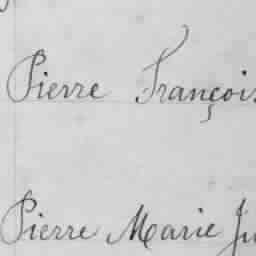 Pierre François
Pierre Marie Ju